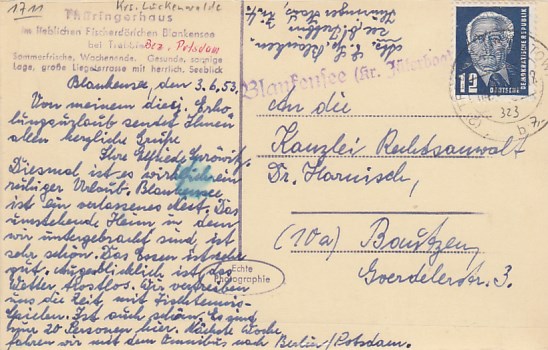 1711
Krs. Luckenwalde
Thüringerhaus
im lieblichen Fischerdörfchen Blankensee
bei Trebbin Bez. Potsdam
Sommerfrische, Wochenende. Gesunde, sonnige
Lage, große Liegeterrasse mit herrlich. Seeblick
Blankensee, den 3.6.53.
Von meinem diesj. Erho-
lungsurlaub sendet Ihnen
allen herzliche Grüße
Ihre Elfriede
Diesmal ist es wirklich ein
ruhiger Urlaub. Blankensee
ist ein verlassenes Nest. Das
umstehende Heim in dem
wir untergebracht sind, ist
sehr schön. Das Essen ist sehr
gut. Augenblicklich ist das
Wetter trostlos. Wir vertreiben
uns die Zeit mit Tischtennis-
spielen. Ist auch schön. Es sind
nur 20 Personen hier. Nächste Woche
fahren wir mit dem Omnibus nach Berlin/Potsdam.
Blankensee
Blankensee (Kr. Jüterbog)
DEUTSCHE DEMOKRATISCHE REPUBLIK
12
323
b
An die
Kanzlei Rechtsanwalt
Dr. Harnisch,
(10a) Bautzen,
Goerdelerstr. 3.
Echte
Photographie